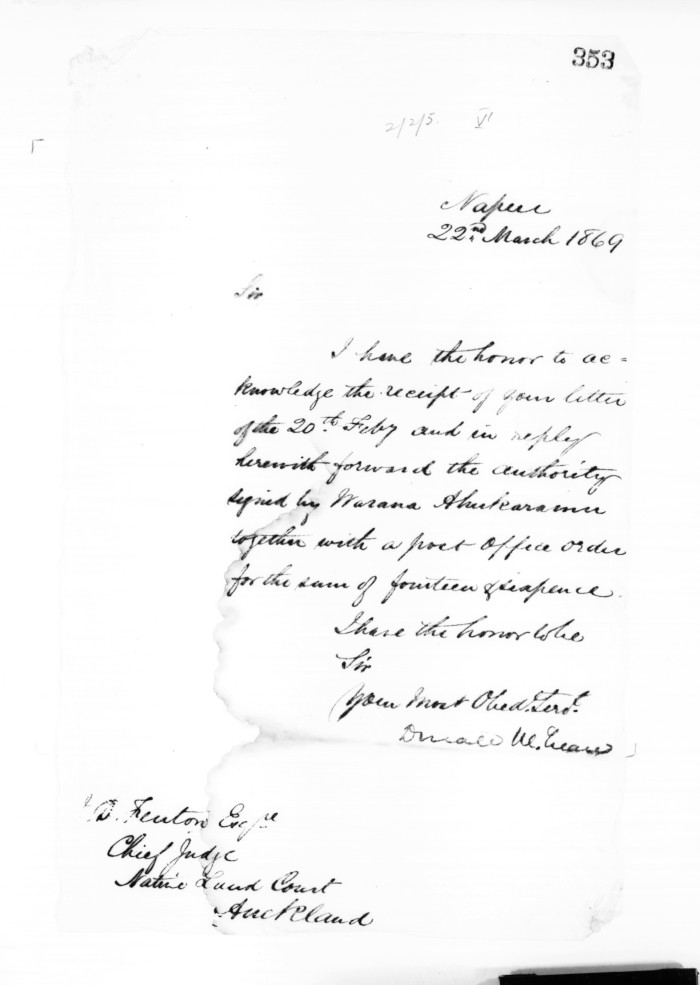 353
2/2/5. VI
Napier
22nd March 1869
Sir
I have the honor to ac=
knowledge the receipt of your letter
of the 20th Feby and in reply
herewith forward the authority
signed by Warana Ahukaramu
together with a post office order
for the sum of fourteen & sixpence.
I have the honor to be
Sir
Your Most Obedt. Servt.
Donald McLean
D. Fenton Esqre
Chief Judge
Native Land Court
Auckland